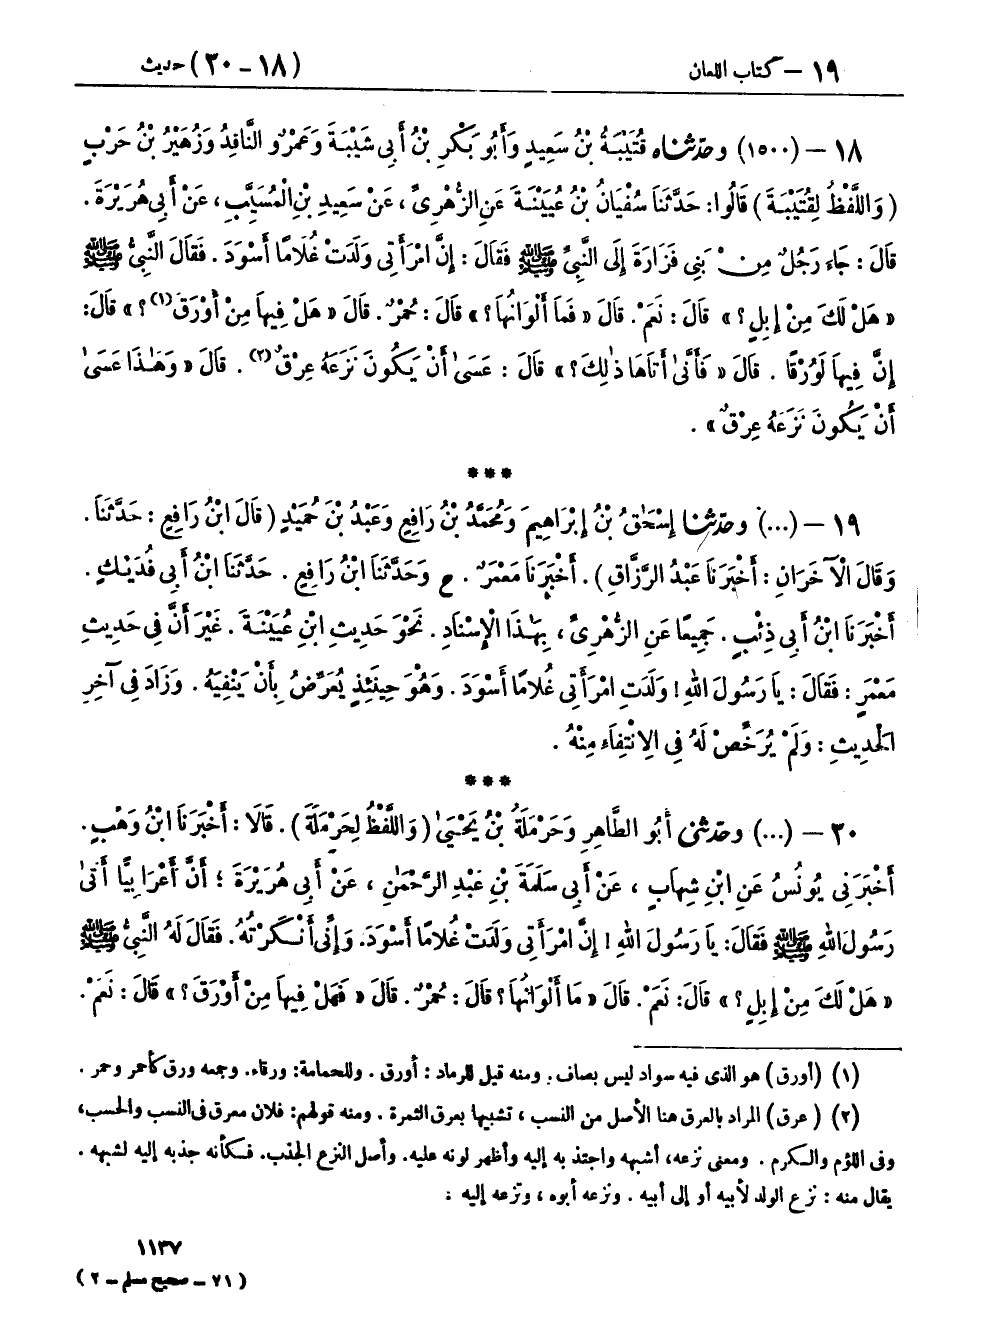 ١٩ – كتاب اللعان (١٨ – ٢٠) حديث
١٨ – (١٥٠٠) وحدّثناه قُتَيْبَةُ بْنُ سَعِيدٍ وَأَبُو بَكْرِ بْنُ أَبِي شَيْبَةَ وَعَمْرٌو النَّاقِدُ وَزُهَيْرُ بْنُ حَرْبٍ
( وَاللَّفْظُ لِقُتَيْبَةَ ) قَالُوا : حَدَّثَنَا سُفْيَانُ بْنُ عُيَيْنَةَ عَنِ الزُّهْرِيِّ ، عَنْ سَعِيدِ بْنِ الْمُسَيَّبِ ، عَنْ أَبِي هُرَيْرَةَ .
قَالَ : جَاءَ رَجُلٌ مِنْ بَنِي فَزَارَةَ إِلَى النَّبِيِّ ﷺ فَقَالَ : إِنَّ امْرَأَتِي وَلَدَتْ غُلَامًا أَسْوَدَ . فَقَالَ النَّبِيُّ ﷺ
« هَلْ لَكَ مِنْ إِبِلٍ ؟ » قَالَ : نَعَمْ . قَالَ « فَمَا أَلْوَانُهَا ؟ » قَالَ : حُمْرٌ . قَالَ « هَلْ فِيهَا مِنْ أَوْرَقَ(١) ؟ » قَالَ :
إِنَّ فِيهَا لَوُرْقًا . قَالَ « فَأَنَّىٰ أَتَاهَا ذٰلِكَ ؟ » قَالَ : عَسَىٰ أَنْ يَكُونَ نَزَعَهُ عِرْقٌ(٢) . قَالَ « وَهٰذَا عَسَىٰ
أَنْ يَكُونَ نَزَعَهُ عِرْقٌ » .
***
١٩ – (...) وحدّثنا إِسْحَٰقُ بْنُ إِبْرَاهِيمَ وَمُحَمَّدُ بْنُ رَافِعٍ وَعَبْدُ بْنُ حُمَيْدٍ ( قَالَ ابْنُ رَافِعٍ : حَدَّثَنَا .
وَقَالَ الْآخَرَانِ : أَخْبَرَنَا عَبْدُ الرَّزَّاقِ ) . أَخْبَرَنَا مَعْمَرٌ . ح وَحَدَّثَنَا ابْنُ رَافِعٍ . حَدَّثَنَا ابْنُ أَبِي فُدَيْكٍ .
أَخْبَرَنَا ابْنُ أَبِي ذِئْبٍ . جَمِيعًا عَنِ الزُّهْرِيِّ ، بِهٰذَا الْإِسْنَادِ . نَحْوَ حَدِيثِ ابْنِ عُيَيْنَةَ . غَيْرَ أَنَّ فِي حَدِيثِ
مَعْمَرٍ : فَقَالَ : يَا رَسُولَ اللهِ ! وَلَدَتِ امْرَأَتِي غُلَامًا أَسْوَدَ . وَهُوَ حِينَئِذٍ يُعَرِّضُ بِأَنْ يَنْفِيَهُ . وَزَادَ فِي آخِرِ
الْحَدِيثِ : وَلَمْ يُرَخِّصْ لَهُ فِي الِانْتِفَاءِ مِنْهُ .
***
٢٠ – (...) وحدّثني أَبُو الطَّاهِرِ وَحَرْمَلَةُ بْنُ يَحْيَىٰ ( وَاللَّفْظُ لِحَرْمَلَةَ ) . قَالَا : أَخْبَرَنَا ابْنُ وَهْبٍ .
أَخْبَرَنِي يُونُسُ عَنِ ابْنِ شِهَابٍ ، عَنْ أَبِي سَلَمَةَ بْنِ عَبْدِ الرَّحْمٰنِ ، عَنْ أَبِي هُرَيْرَةَ ؛ أَنَّ أَعْرَابِيًّا أَتَىٰ
رَسُولَ اللهِ ﷺ فَقَالَ : يَا رَسُولَ اللهِ ! إِنَّ امْرَأَتِي وَلَدَتْ غُلَامًا أَسْوَدَ . وَإِنِّي أَنْكَرْتُهُ . فَقَالَ لَهُ النَّبِيُّ ﷺ
« هَلْ لَكَ مِنْ إِبِلٍ ؟ » قَالَ : نَعَمْ . قَالَ « مَا أَلْوَانُهَا ؟ قَالَ : حُمْرٌ . قَالَ « فَهَلْ فِيهَا مِنْ أَوْرَقَ ؟ » قَالَ : نَعَمْ .
(١) (أورق) هو الذى فيه سواد ليس بصاف . ومنه قيل للرماد : أورق . وللحمامة : ورقاء . وجمعه ورق كأحمر وحمر .
(٢) (عرق) المراد بالعرق هنا الأصل من النسب ، تشبيها بعرق الثمرة . ومنه قولهم : فلان معرق فى النسب والحسب،
وفى اللؤم والكرم . ومعنى نزعه، أشبهه واجتذبه إليه وأظهر لونه عليه. وأصل النزع الجذب. فكأنه جذبه إليه لشبهه .
يقال منه : نزع الولد لأبيه أو إلى أبيه . ونزعه أبوه ، ونزعه إليه :
١١٣٧
( ٧١ – صحيح مسلم – ٢ )